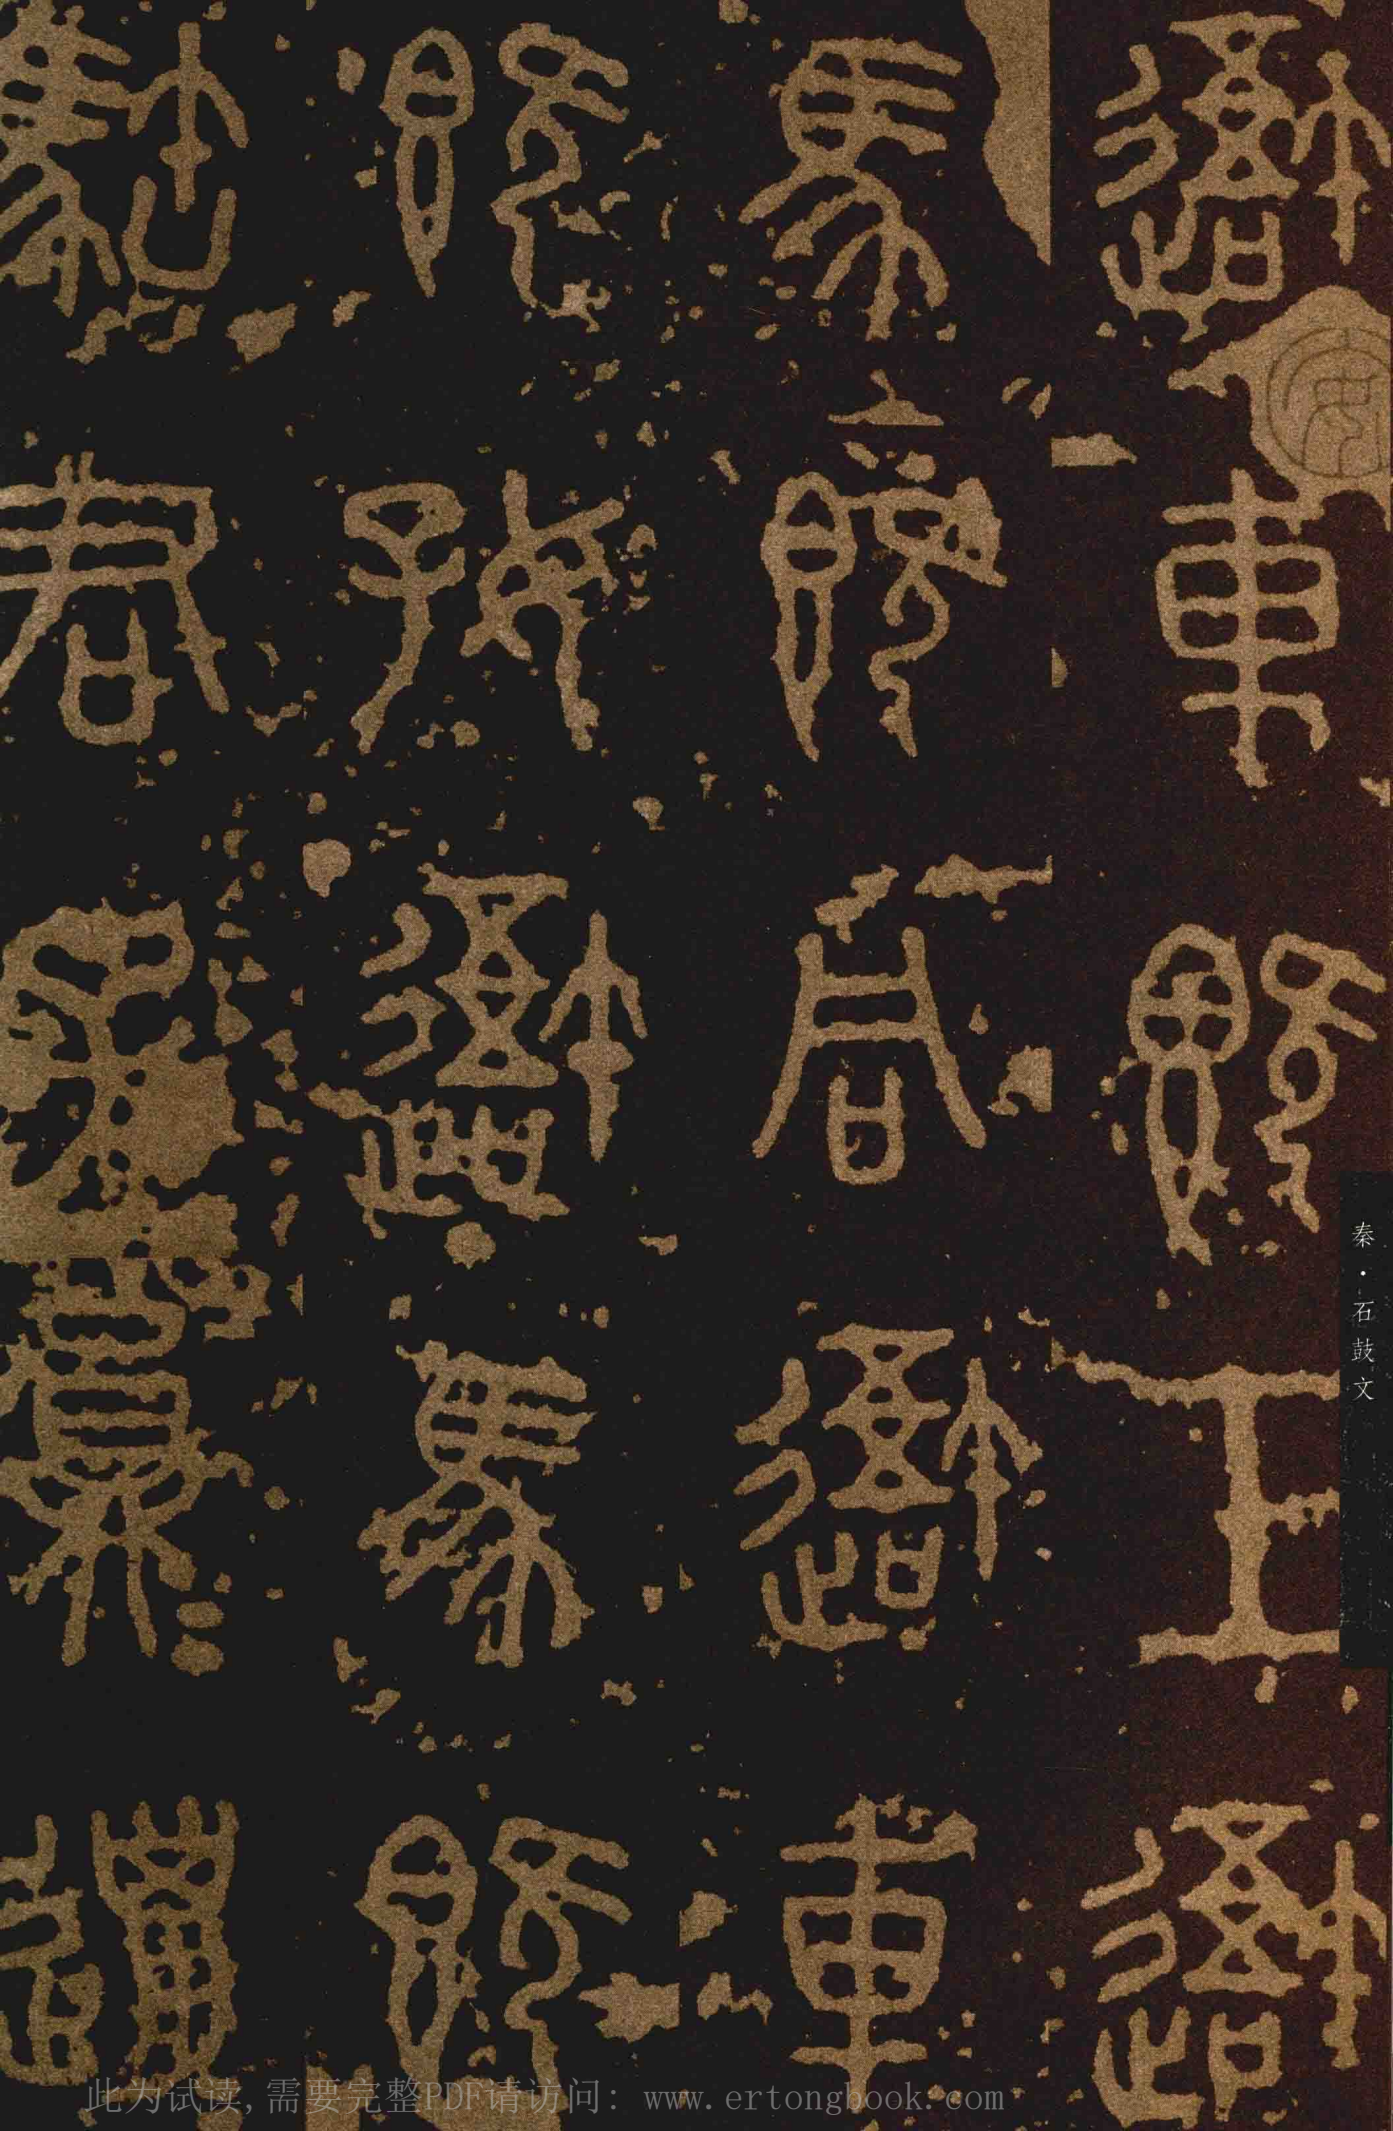 避車既工避
馬既同避車
既好避馬既
駐君子員邋
秦·石鼓文
此为试读,需要完整PDF请访问: www.ertongbook.com